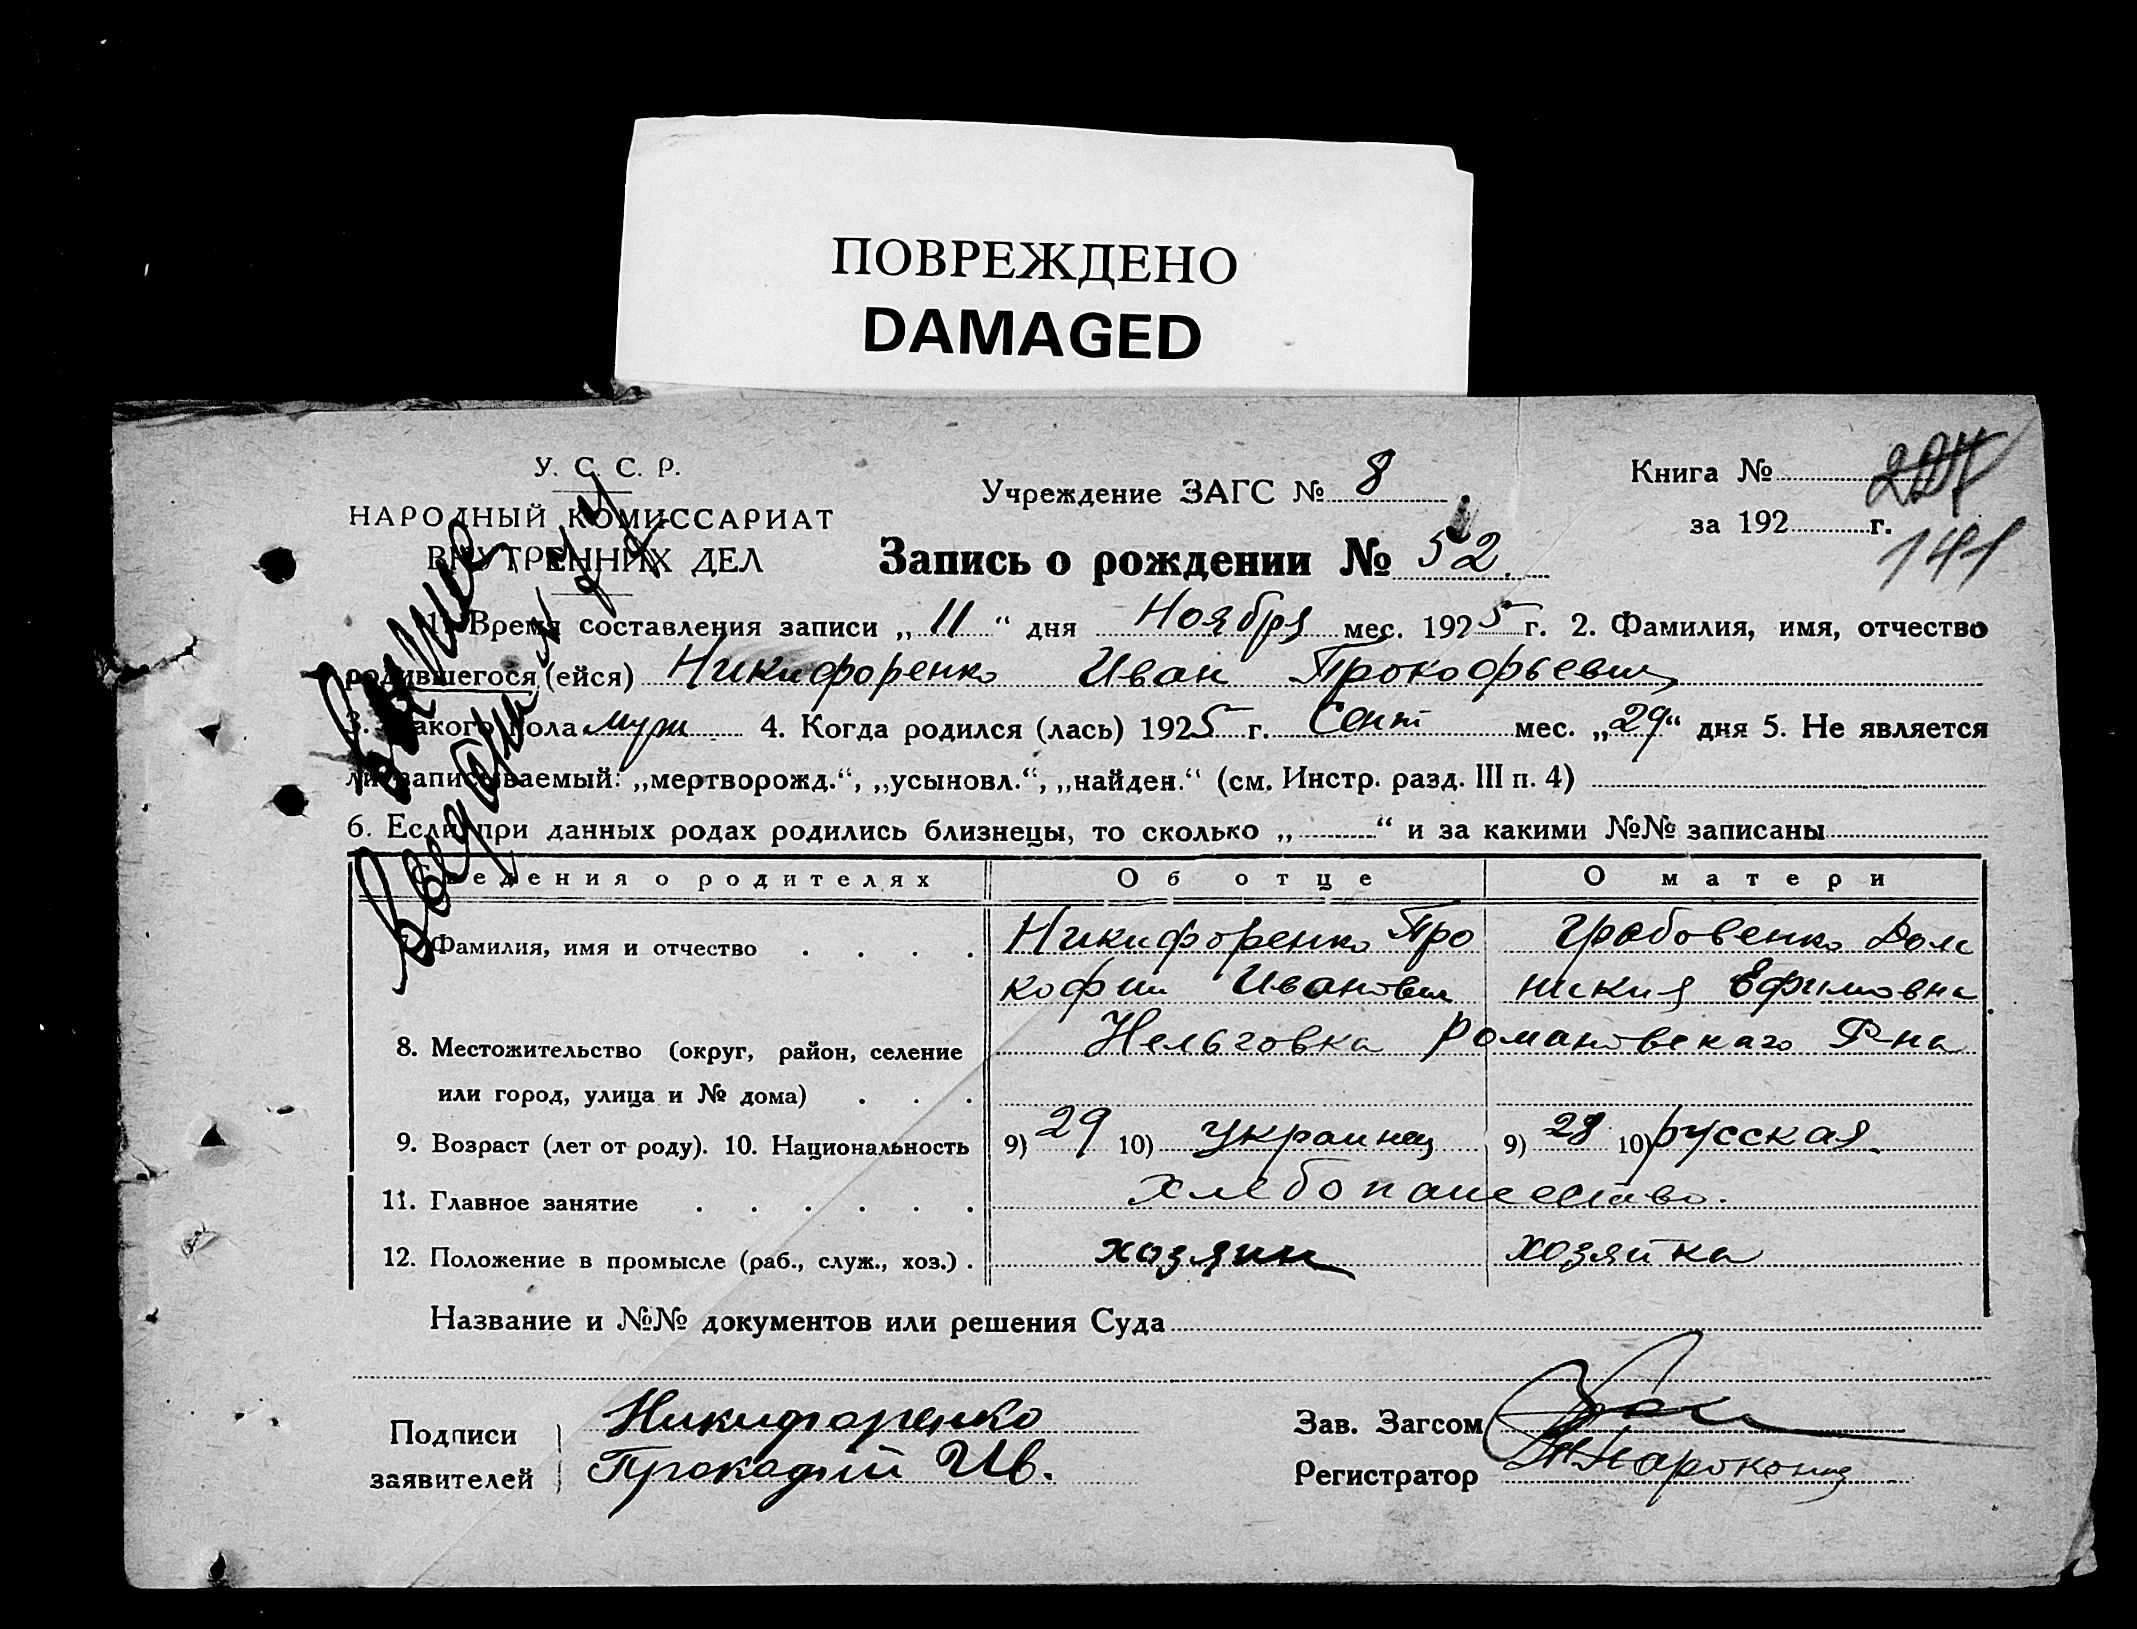 ПОВРЕЖДЕНО
DAMAGED
У. С. С. Р.
НАРОДНЫЙ КОМИССАРИАТ
ВНУТРЕННИХ ДЕЛ
Учреждение ЗАГС № 8
Запись о рождении № 52.
Книга № 207
за 192 г.
141
1. Время составления записи „11“ дня Ноября мес. 1925 г. 2. Фамилия, имя, отчество
родившегося (ейся) Никифоренко Иван Прокофьевич
3. Какого пола муж 4. Когда родился (лась) 1925 г. Сент мес. „29“ дня 5. Не является
ли записываемый: „мертворожд.“, „усыновл.“, „найден.“ (см. Инстр. разд. III п. 4)
6. Если при данных родах родились близнецы, то сколько „ “ и за какими №№ записаны
Сведения о родителях Об отце О матери
7. Фамилия, имя и отчество Никифоренко Про Грабовенко Дом
кофий Иванович никия Ефимовна
8. Местожительство (округ, район, селение Нельговка Романовскаго Р-на
или город, улица и № дома)
9. Возраст (лет от роду). 10. Национальность 9) 29 10) украинец 9) 28 10) русская
11. Главное занятие хлебопашество.
12. Положение в промысле (раб., служ., хоз.) хозяин хозяйка
Название и №№ документов или решения Суда
Подписи Никифоренко
заявителей Прокофий Ив.
Зав. Загсом
Регистратор